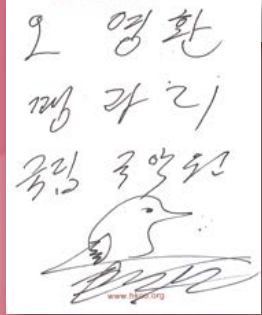 오 영환
꽹 과 리
국립 국악원
www.hkoo.org